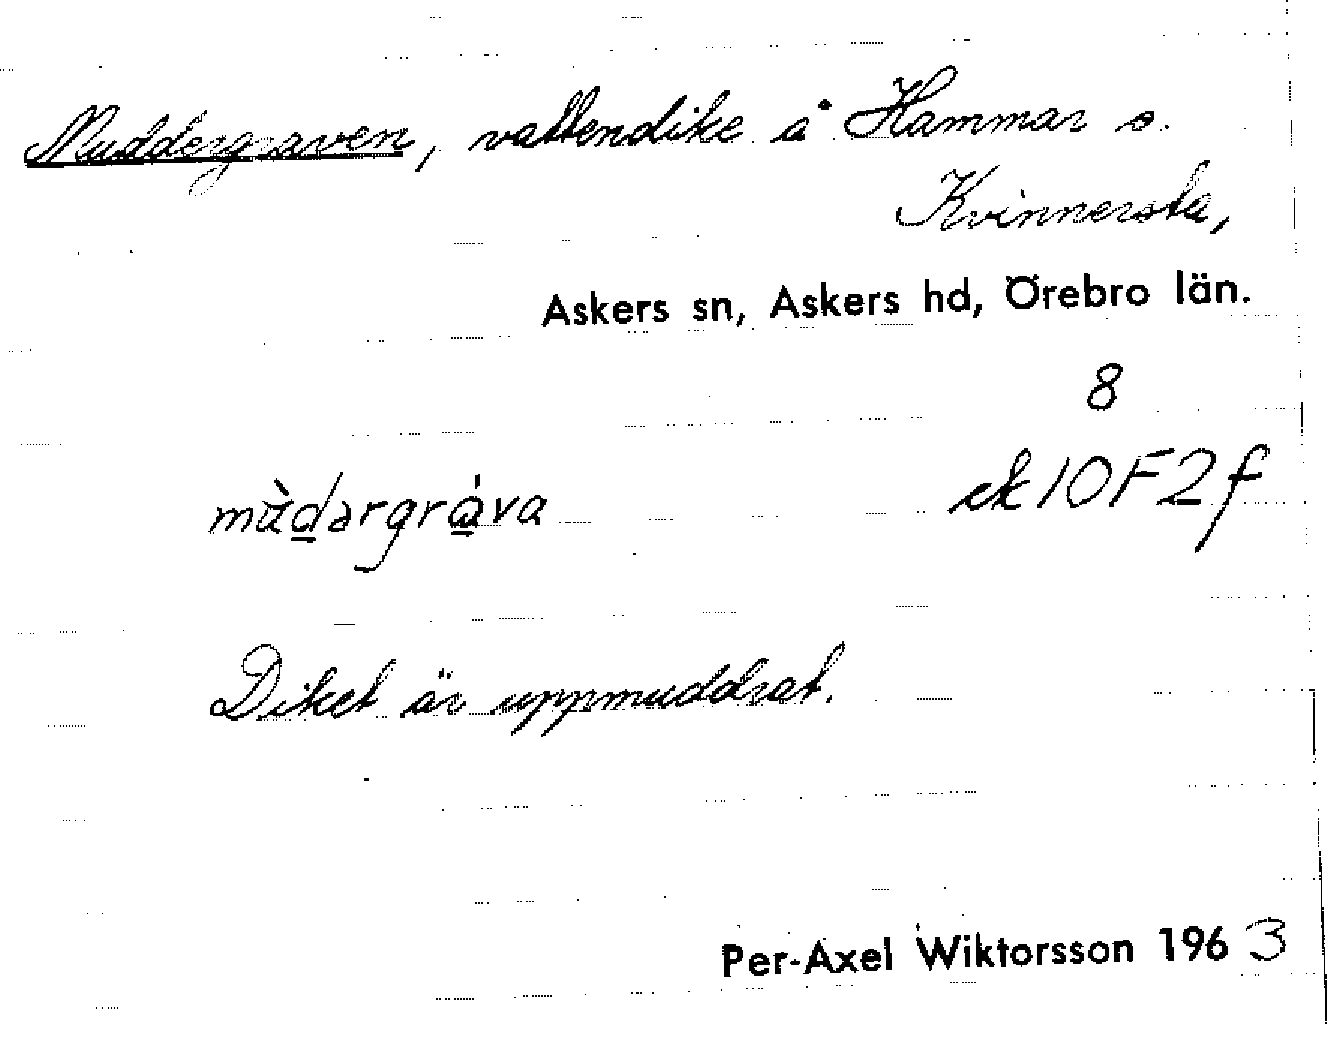 Muddergraven, vattendike å Hammar o.
Kvinnersta,
Askers sn, Askers hd, Örebro län.
8
mùdargráva ek 10F2f
Diket är uppmuddrat.
Per-Axel Wiktorsson 1963